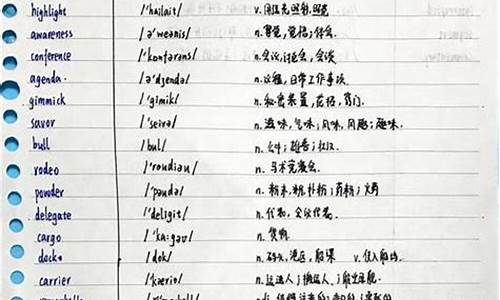 highlight /'hailait/ v.用强光照射,照亮
awareness /ə'weənis/ n.察觉,觉悟;体会.
conference /'kɔnfərəns/ n.会议,讨论会,会谈
agenda /ə'dʒendə/ n.议程,日常工作事项
gimmick /'gimik/ n.秘密装置,花招,窍门.
savor /'seivə/ n.滋味,气味;风味,风趣;趣味.
bull /bul/ n.公牛;
rodeo /'roudiəu/ n.马术竞赛会.
powder /'paudə/ n.粉末,粉,扑粉;药粉;火药
delegate /'deligit/ n.代表,会议代表.
cargo /'ka:gəu/ n.货物
docks /dok/ n.码头,港区,船渠 v.使入船坞.
carrier /'kæriə/ n.运送人;搬运人;航空母舰.